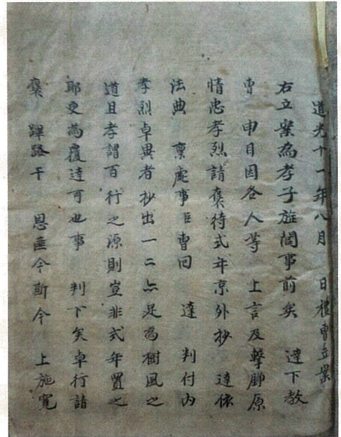 道光十一年八月 日禮曹立案
右立案為孝子旌閭事前矣 達下教
曹 申目因各人等 上言及擊錚原
情忠孝烈請褒待式年稟外抄 達係
法典 稟處事臣曹回 達 判付內
孝烈卓異者抄出一二亦足為樹風之
道且孝謂百行之源則豈非式年置之
耶更為覆達可也事 判下矣卓行諸
褒 蹕路干 恩亟令斯今 上施寬